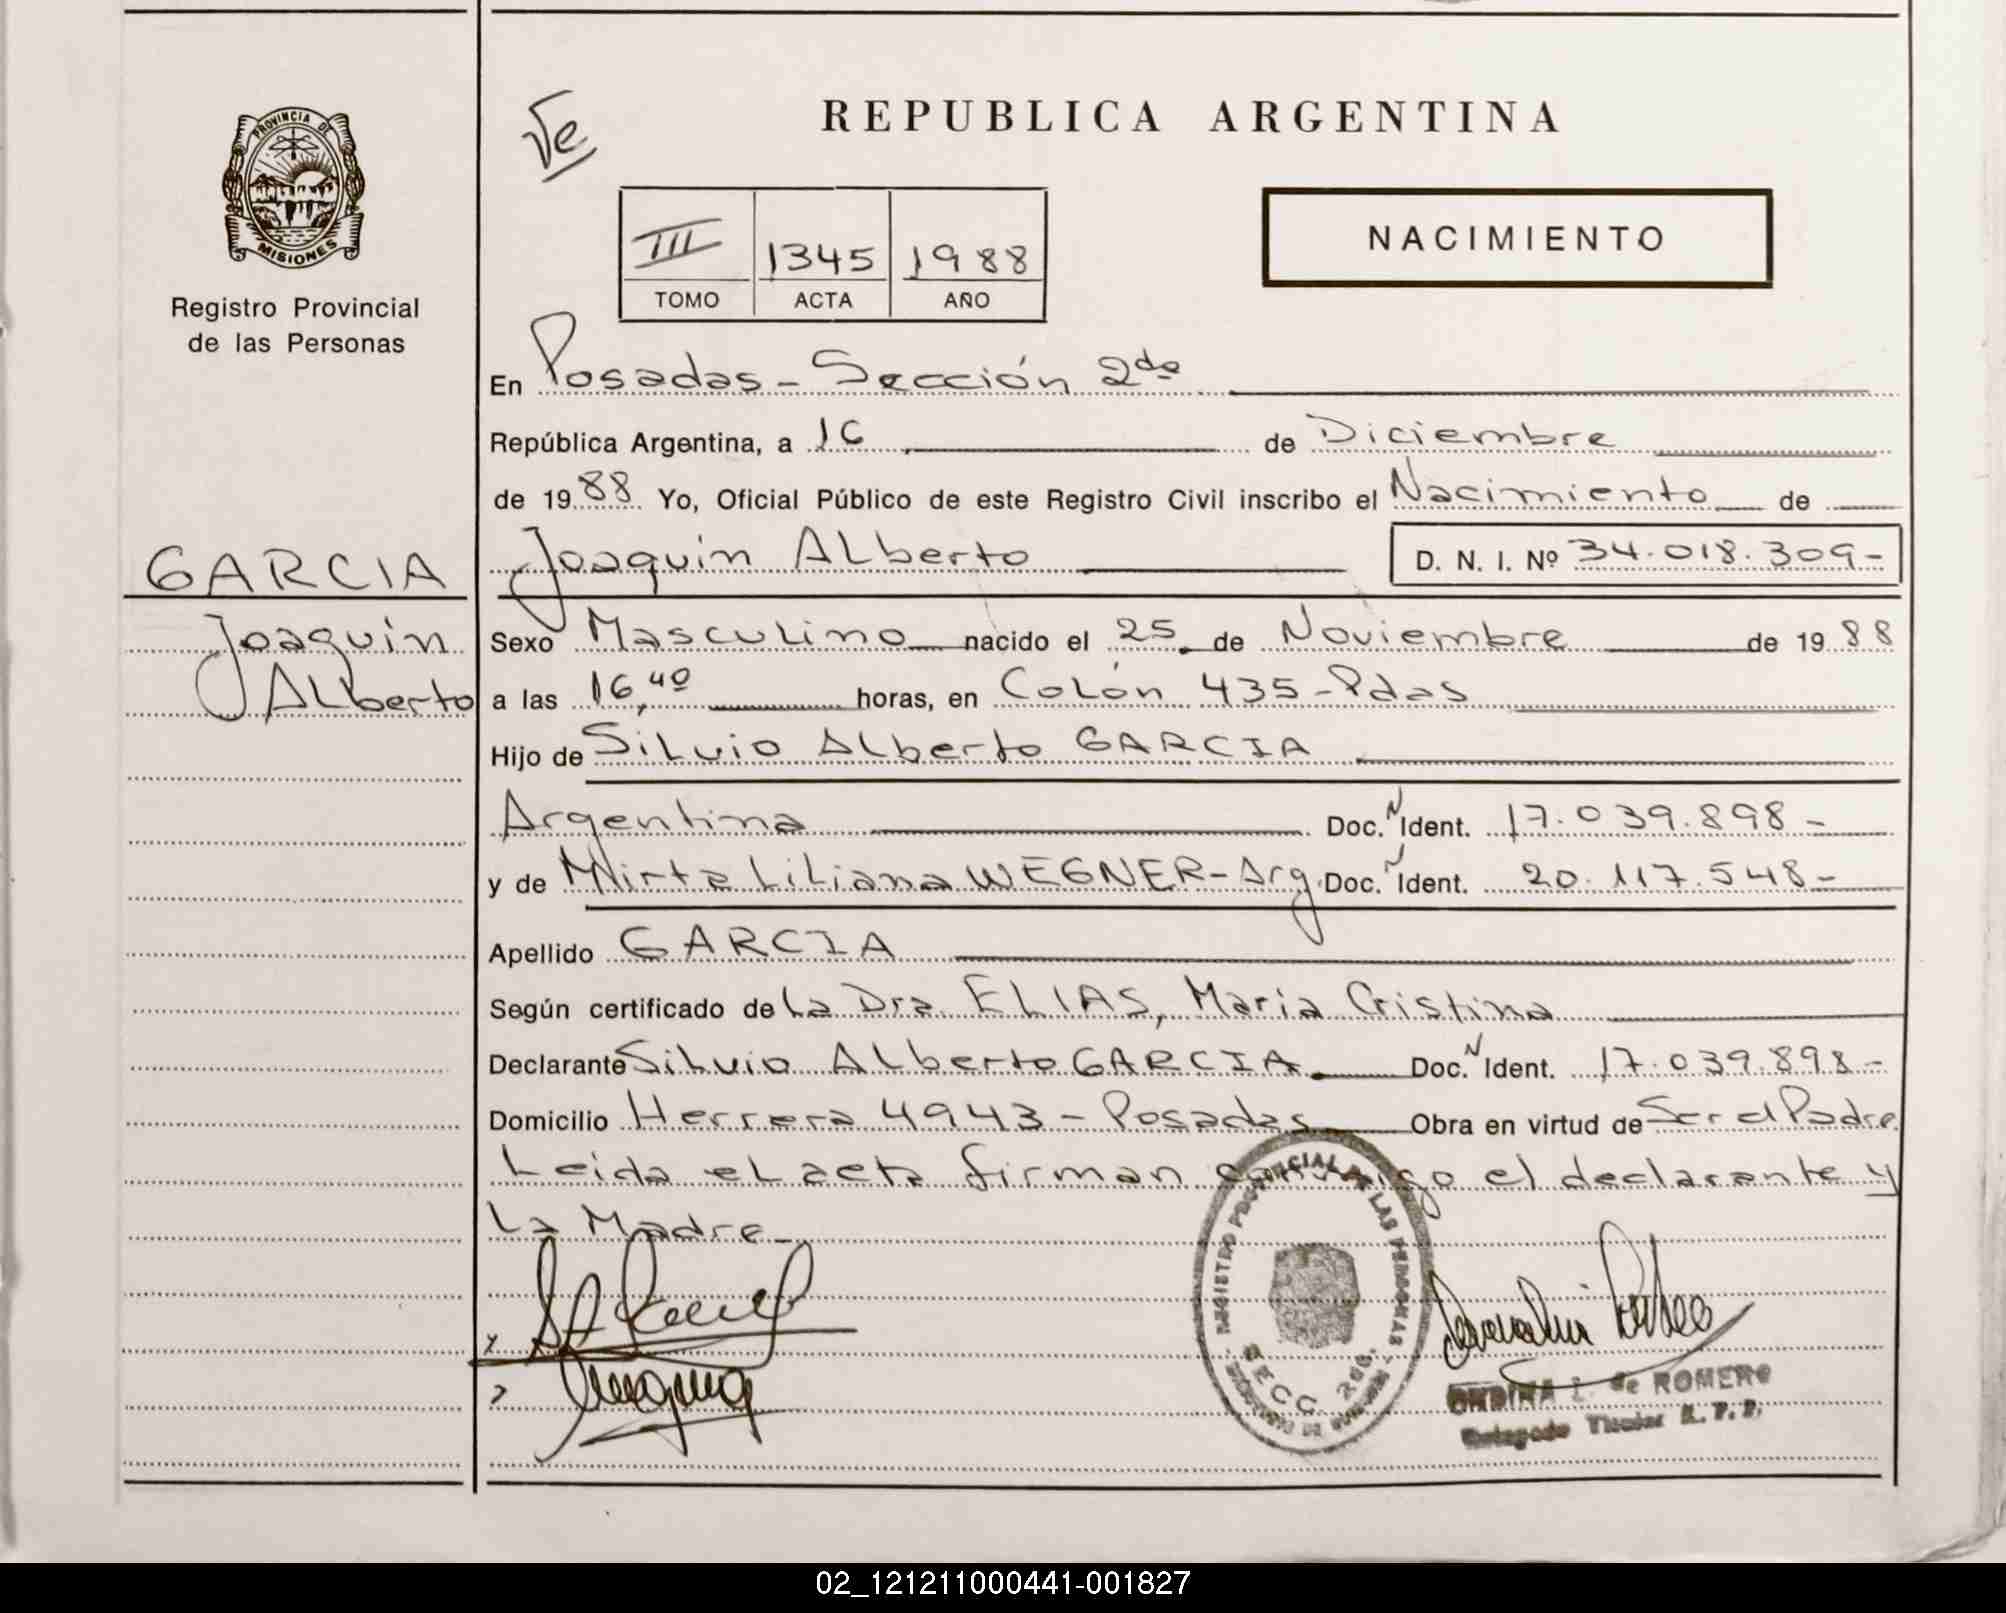 PROVINCIA DE
MISIONES
Registro Provincial
de las Personas
GARCIA
Joaquin
Alberto
REPUBLICA ARGENTINA
III 1345 1988
TOMO ACTA AÑO
NACIMIENTO
En Posadas - Sección 2da
República Argentina, a 16 de Diciembre
de 1988 Yo, Oficial Público de este Registro Civil inscribo el Nacimiento de
Joaquin Alberto D. N. I. Nº 34.018.309-
Sexo Masculino nacido el 25 de Noviembre de 1988
a las 16,40 horas, en Colón 435-Pdas
Hijo de Silvio Alberto GARCIA
Argentina Doc. N Ident. 17.039.898-
y de Mirta Liliana WEGNER-Arg. Doc. N Ident. 20.117.548-
Apellido GARCIA
Según certificado de La Dra. ELIAS, Maria Cristina
Declarante Silvio Alberto GARCIA Doc. N Ident. 17.039.898-
Domicilio Herrera 4943 - Posadas Obra en virtud de Ser el Padre
Leida el acta firman conmigo el declarante y
La Madre-
REGISTRO PROVINCIAL DE LAS PERSONAS
SECC. 2da.
ONDINA I. de ROMERO
Delegado Titular R. P. P.
02_121211000441-001827